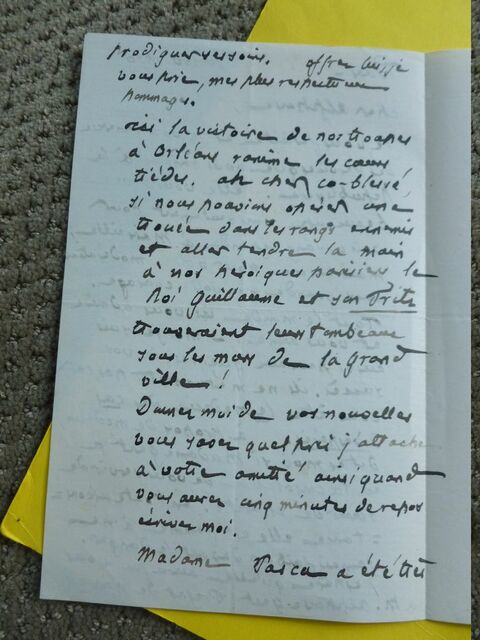 prodiguer ses soins. offrez lui, je
vous prie, mes plus respectueux
hommages.
ici la victoire de nos troupes
à Orléans ranime les cœurs
tièdes. ah cher co-blessé,
si nous pouvions opérer une
trouée dans les rangs ennemis
et aller tendre la main
à nos héroïques parisiens le
Roi Guillaume et son Fritz
trouveraient leurs tombeaux
sous les murs de la grand
ville!
Donner moi de vos nouvelles
vous savez quel prix j'attache
à votre amitié ainsi quand
vous aurez cinq minutes de repos
écrivez moi.
Madame Pasca a été très